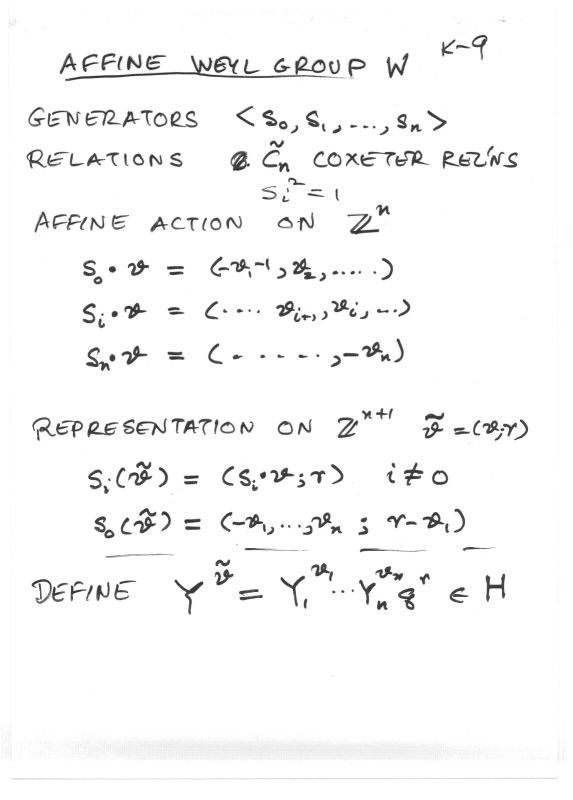 K-9
AFFINE WEYL GROUP W
GENERATORS <S₀, S₁, ..., Sₙ>
RELATIONS C̃ₙ COXETER REL'NS
Sᵢ² = 1
AFFINE ACTION ON ℤⁿ
S₀ • v = (-v₁-1, v₂, .....)
Sᵢ • v = (.... vᵢ₊₁, vᵢ, ...)
Sₙ • v = (- - - - - -, -vₙ)
REPRESENTATION ON ℤⁿ⁺¹ ṽ = (v; r)
Sᵢ(ṽ) = (Sᵢ • v; r) i ≠ 0
S₀(ṽ) = (-v₁, ..., vₙ ; r-v₁)
DEFINE Y^ṽ = Y₁^v₁ ... Yₙ^vₙ q^r ∈ H